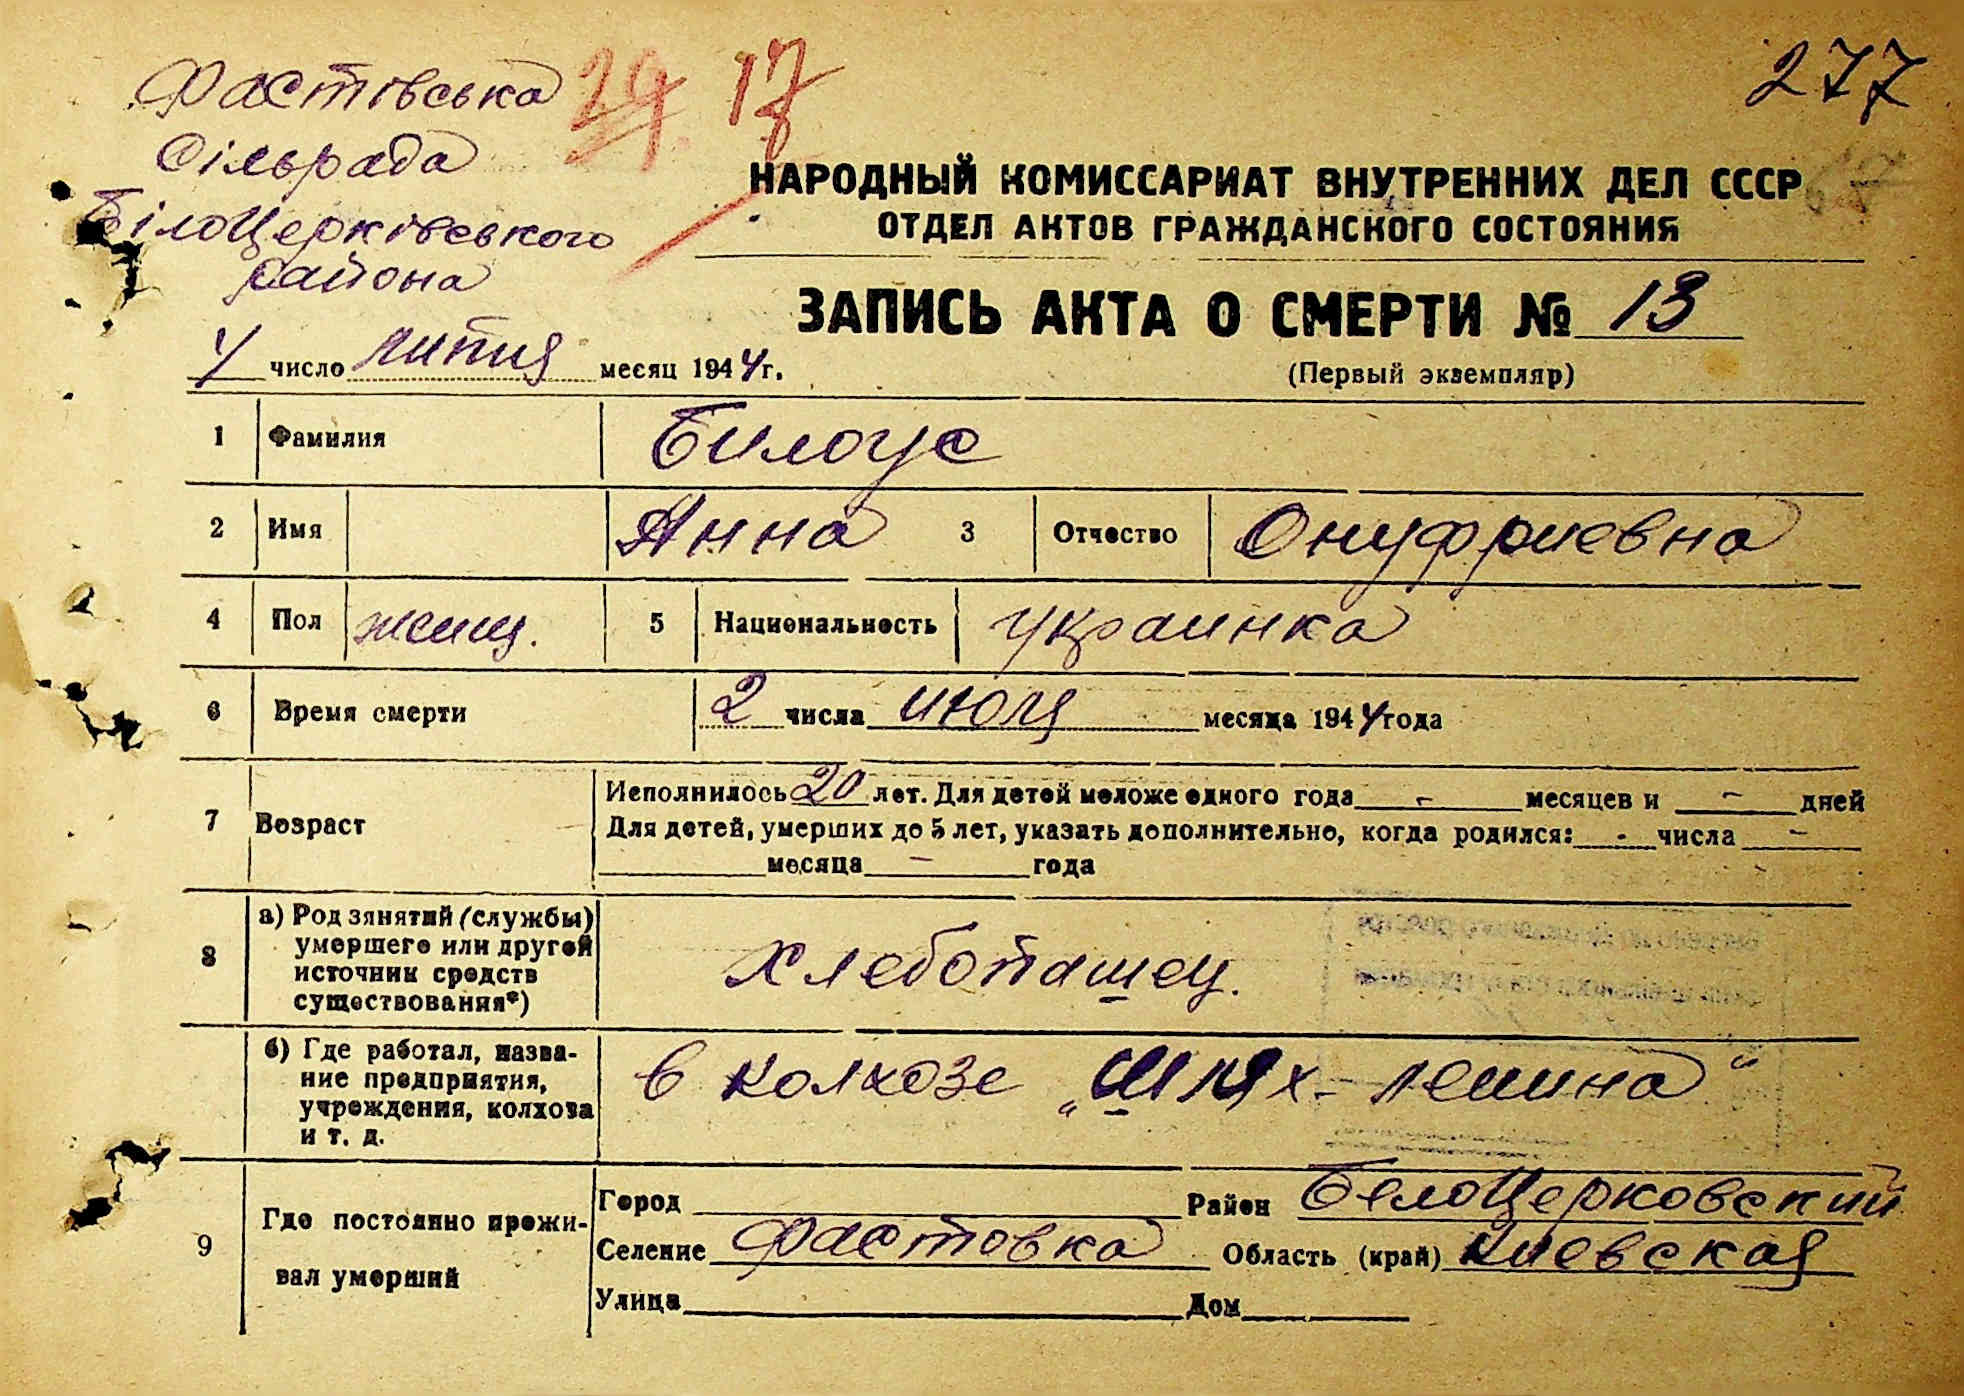 277
Фастівська 29. 17
сільрада
БілоЦерківського
района
НАРОДНЫЙ КОМИССАРИАТ ВНУТРЕННИХ ДЕЛ СССР
ОТДЕЛ АКТОВ ГРАЖДАНСКОГО СОСТОЯНИЯ
ЗАПИСЬ АКТА О СМЕРТИ № 13
4 число липня месяц 1944г.
(Первый экземпляр)
1 Фамилия Билоус
2 Имя Анна 3 Отчество Онуфриевна
4 Пол женщ. 5 Национальность украинка
6 Время смерти 2 числа июля месяца 1944 года
Исполнилось 20 лет. Для детей моложе одного года - месяцев и - дней
7 Возраст Для детей, умерших до 5 лет, указать дополнительно, когда родился: - числа -
месяца - года
8 а) Род занятий (службы) умершего или другой источник средств существования*) Хлебопашец.
б) Где работал, название предприятия, учреждения, колхоза и т. д. в колхозе „Шлях-Ленина"
9 Где постоянно проживал умерший
Город Район БелоЦерковский
Селение Фастовка Область (край) Киевская
Улица Дом